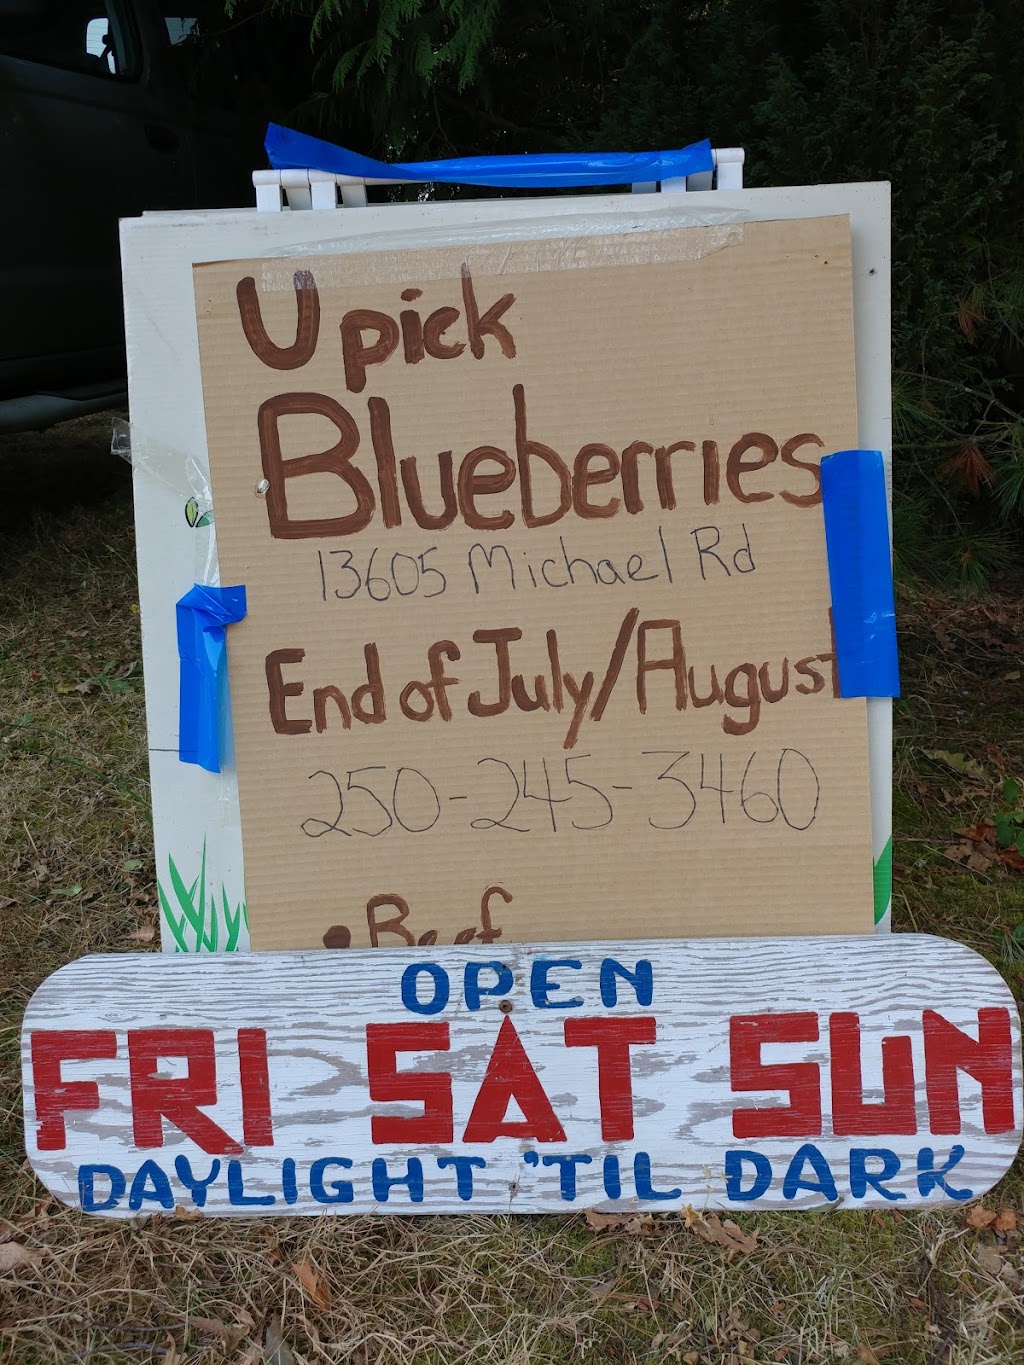 Upick
Blueberries
13605 Michael Rd
End of July/August
250-245-3460
• Beef
OPEN
FRI SAT SUN
DAYLIGHT 'TIL DARK